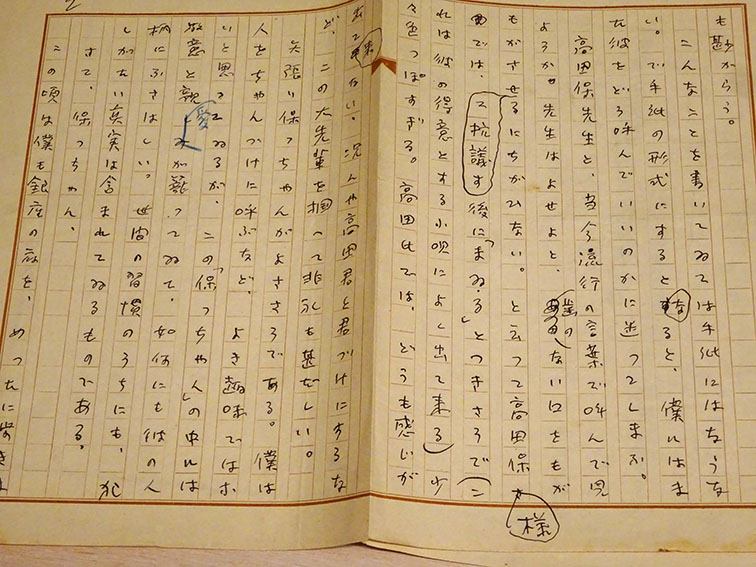 も甚からう。
こんなことを書いてゐては手紙にはならな
い。で手紙の形式にするとなると、僕にはま
た彼をどう呼んでいいのかに迷つてしまふ。
高田保先生と、当今流行の言葉で呼んで見
ようか。先生はよせよと、歯のない口をもが
もがさせるにちがひない。と云つて高田保様
では、抗議す後に「まゐる」とつきさうで(こ
れは彼の得意とする小唄によく出て来る)少
々色つぽすぎる。高田氏では、どうも感じが
出て来ない。況んや高田君と君づけにするな
ど、この大先輩を掴つて非礼も甚だしい。
矢張り保つちやんがよささうである。僕は
人をちやんづけに呼ぶなど、よき趣味ではな
いと思つてゐるが、この「保つちやん」の中には
敬意と親愛が籠つてゐて、如何にも彼の人
柄にふさはしい。世間の習慣のうちにも、犯
しがたい真実は含まれてゐるものである。
さて、保つちやん、
この頃は僕も銀座の夜を、めつたに歩きま